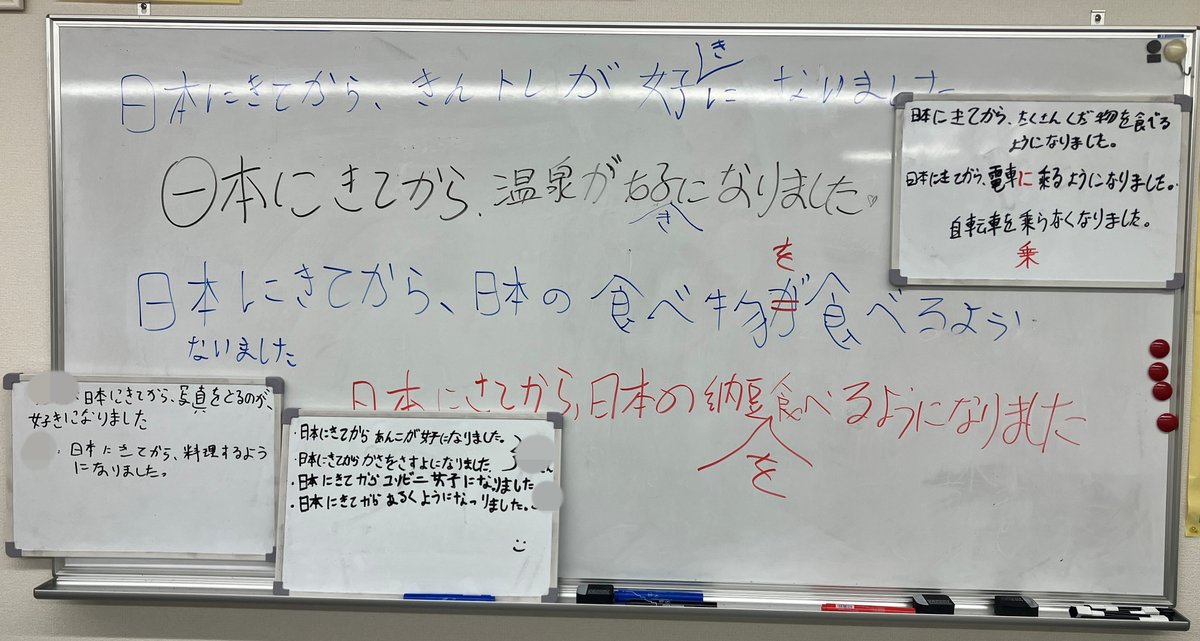 日本にきてから、きんトレが 好に ないました
き
日本にきてから、温泉が好になりました♡
き
日本にきてから、日本の食べ牛物が食べるよう
を
ないました
日本にきてから、日本の納豆食べるようになりました
を
日本にきてから、たくさんくだ物を食べる
ようになりました。
日本にきてから、電車に乗るようになりました。
自転車を乗らなくなりました。
乗
日本にきてから、写真をとるのが、
好きになりました
・日本にきてから、料理するよう
になりました。
・日本にきてから あんこが好になりました。
・日本にきてから かさをさすよになりました。
・日本にきてから コンビニ好になりました
・日本にきてから あるくようになっりました。